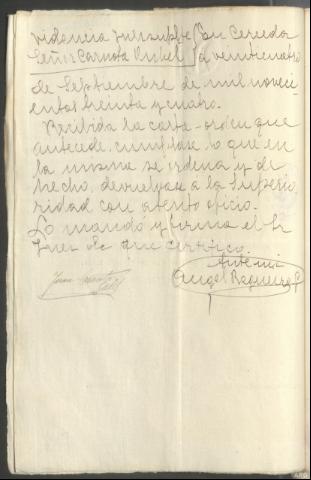 videncia Juez supte / En Cerceda
Señor Carnota Pussel / a veinticuatro
de Septiembre de mil noveci-
entos treinta y cuatro.
Recibida la carta-orden que
antecede, cumplase lo que en
la misma se ordena y de
hecho, devuelvase a la Superio-
ridad con atento oficio.
Lo mandó y firma el Sr
Juez de que certifico.
Ante mi
Juan
Angel Regueiro